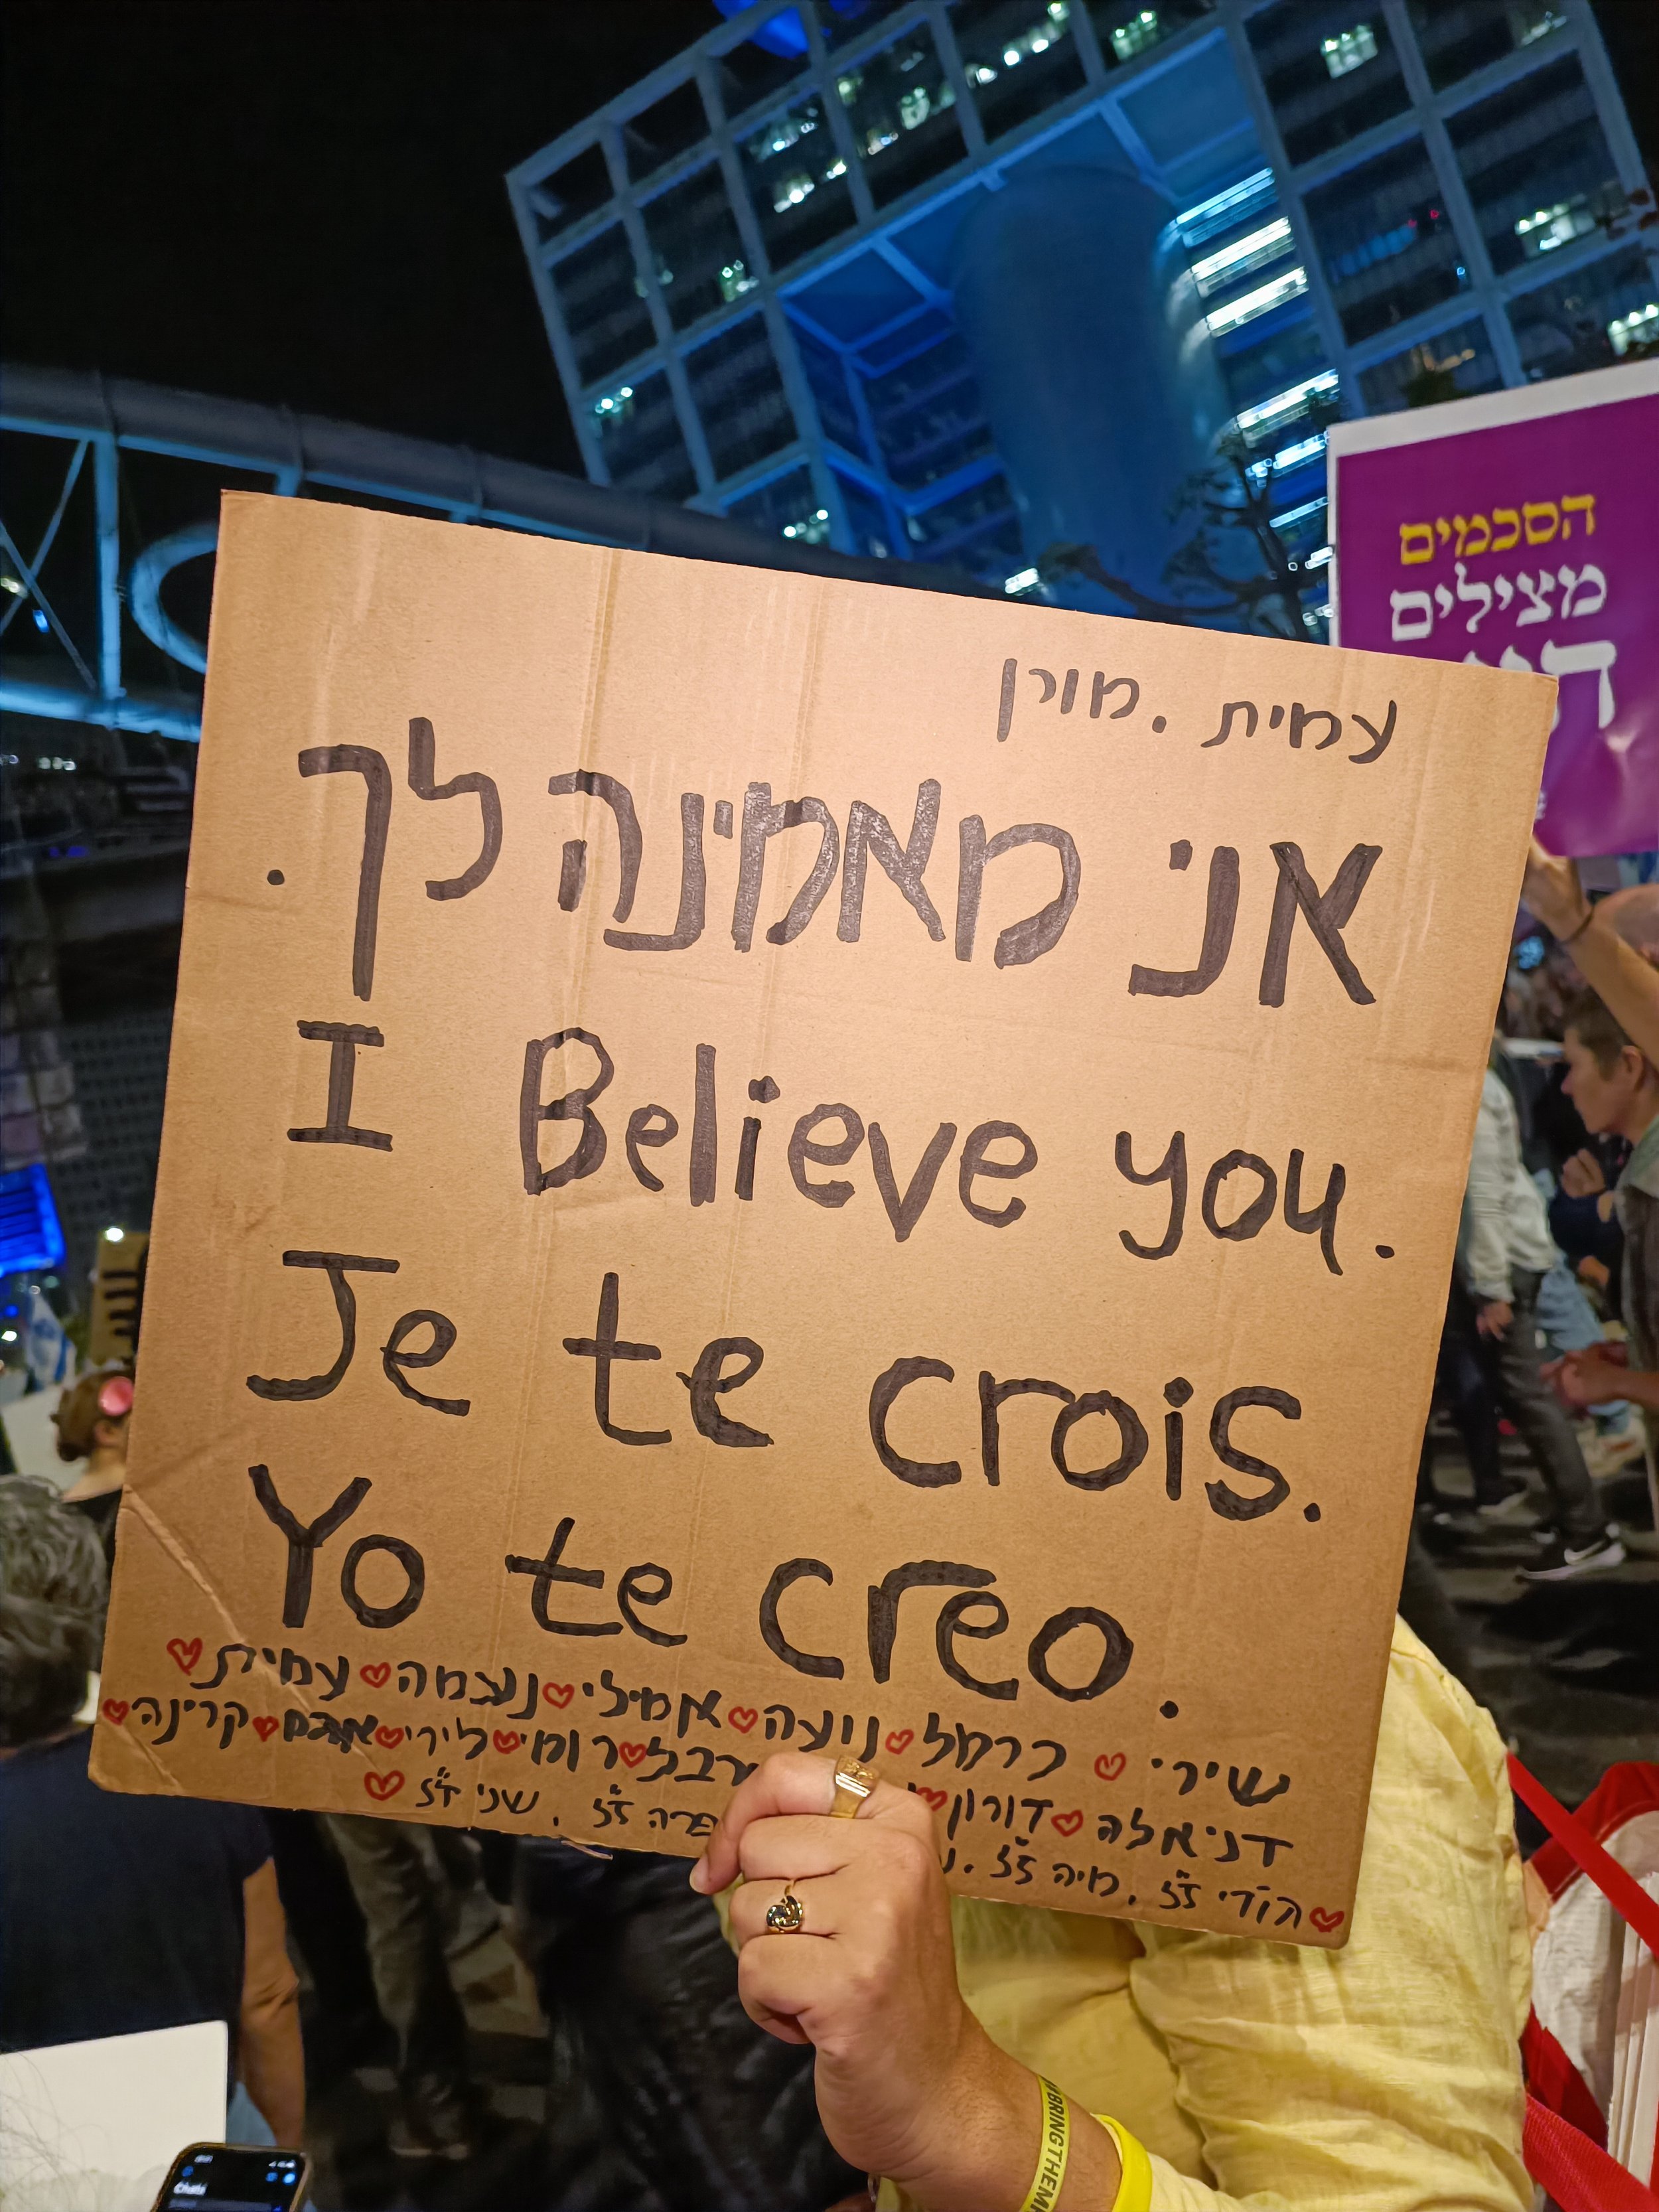 הסכמים
מצילים
עמית . מורן
אני מאמינה לך.
I Believe you.
Je te crois.
Yo te creo.
שירי ♥ כרמל ♥ נועה ♥ אמילי ♥ נעמה ♥ עמית ♥
דניאלה ♥ דורון ♥ ארבל ♥ רומי ♥ לירי ♥ אגם ♥ קרינה ♥
♥ הודי ז"ל . מיה ז"ל . נ שני ז"ל ♥
BRINGTHEM
Chats